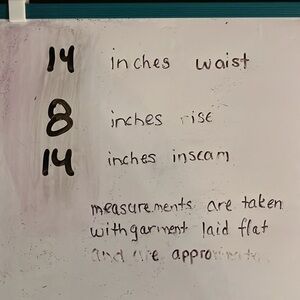 14 inches waist
8 inches rise
14 inches inseam
measurements are taken
with garment laid flat
and are approximate